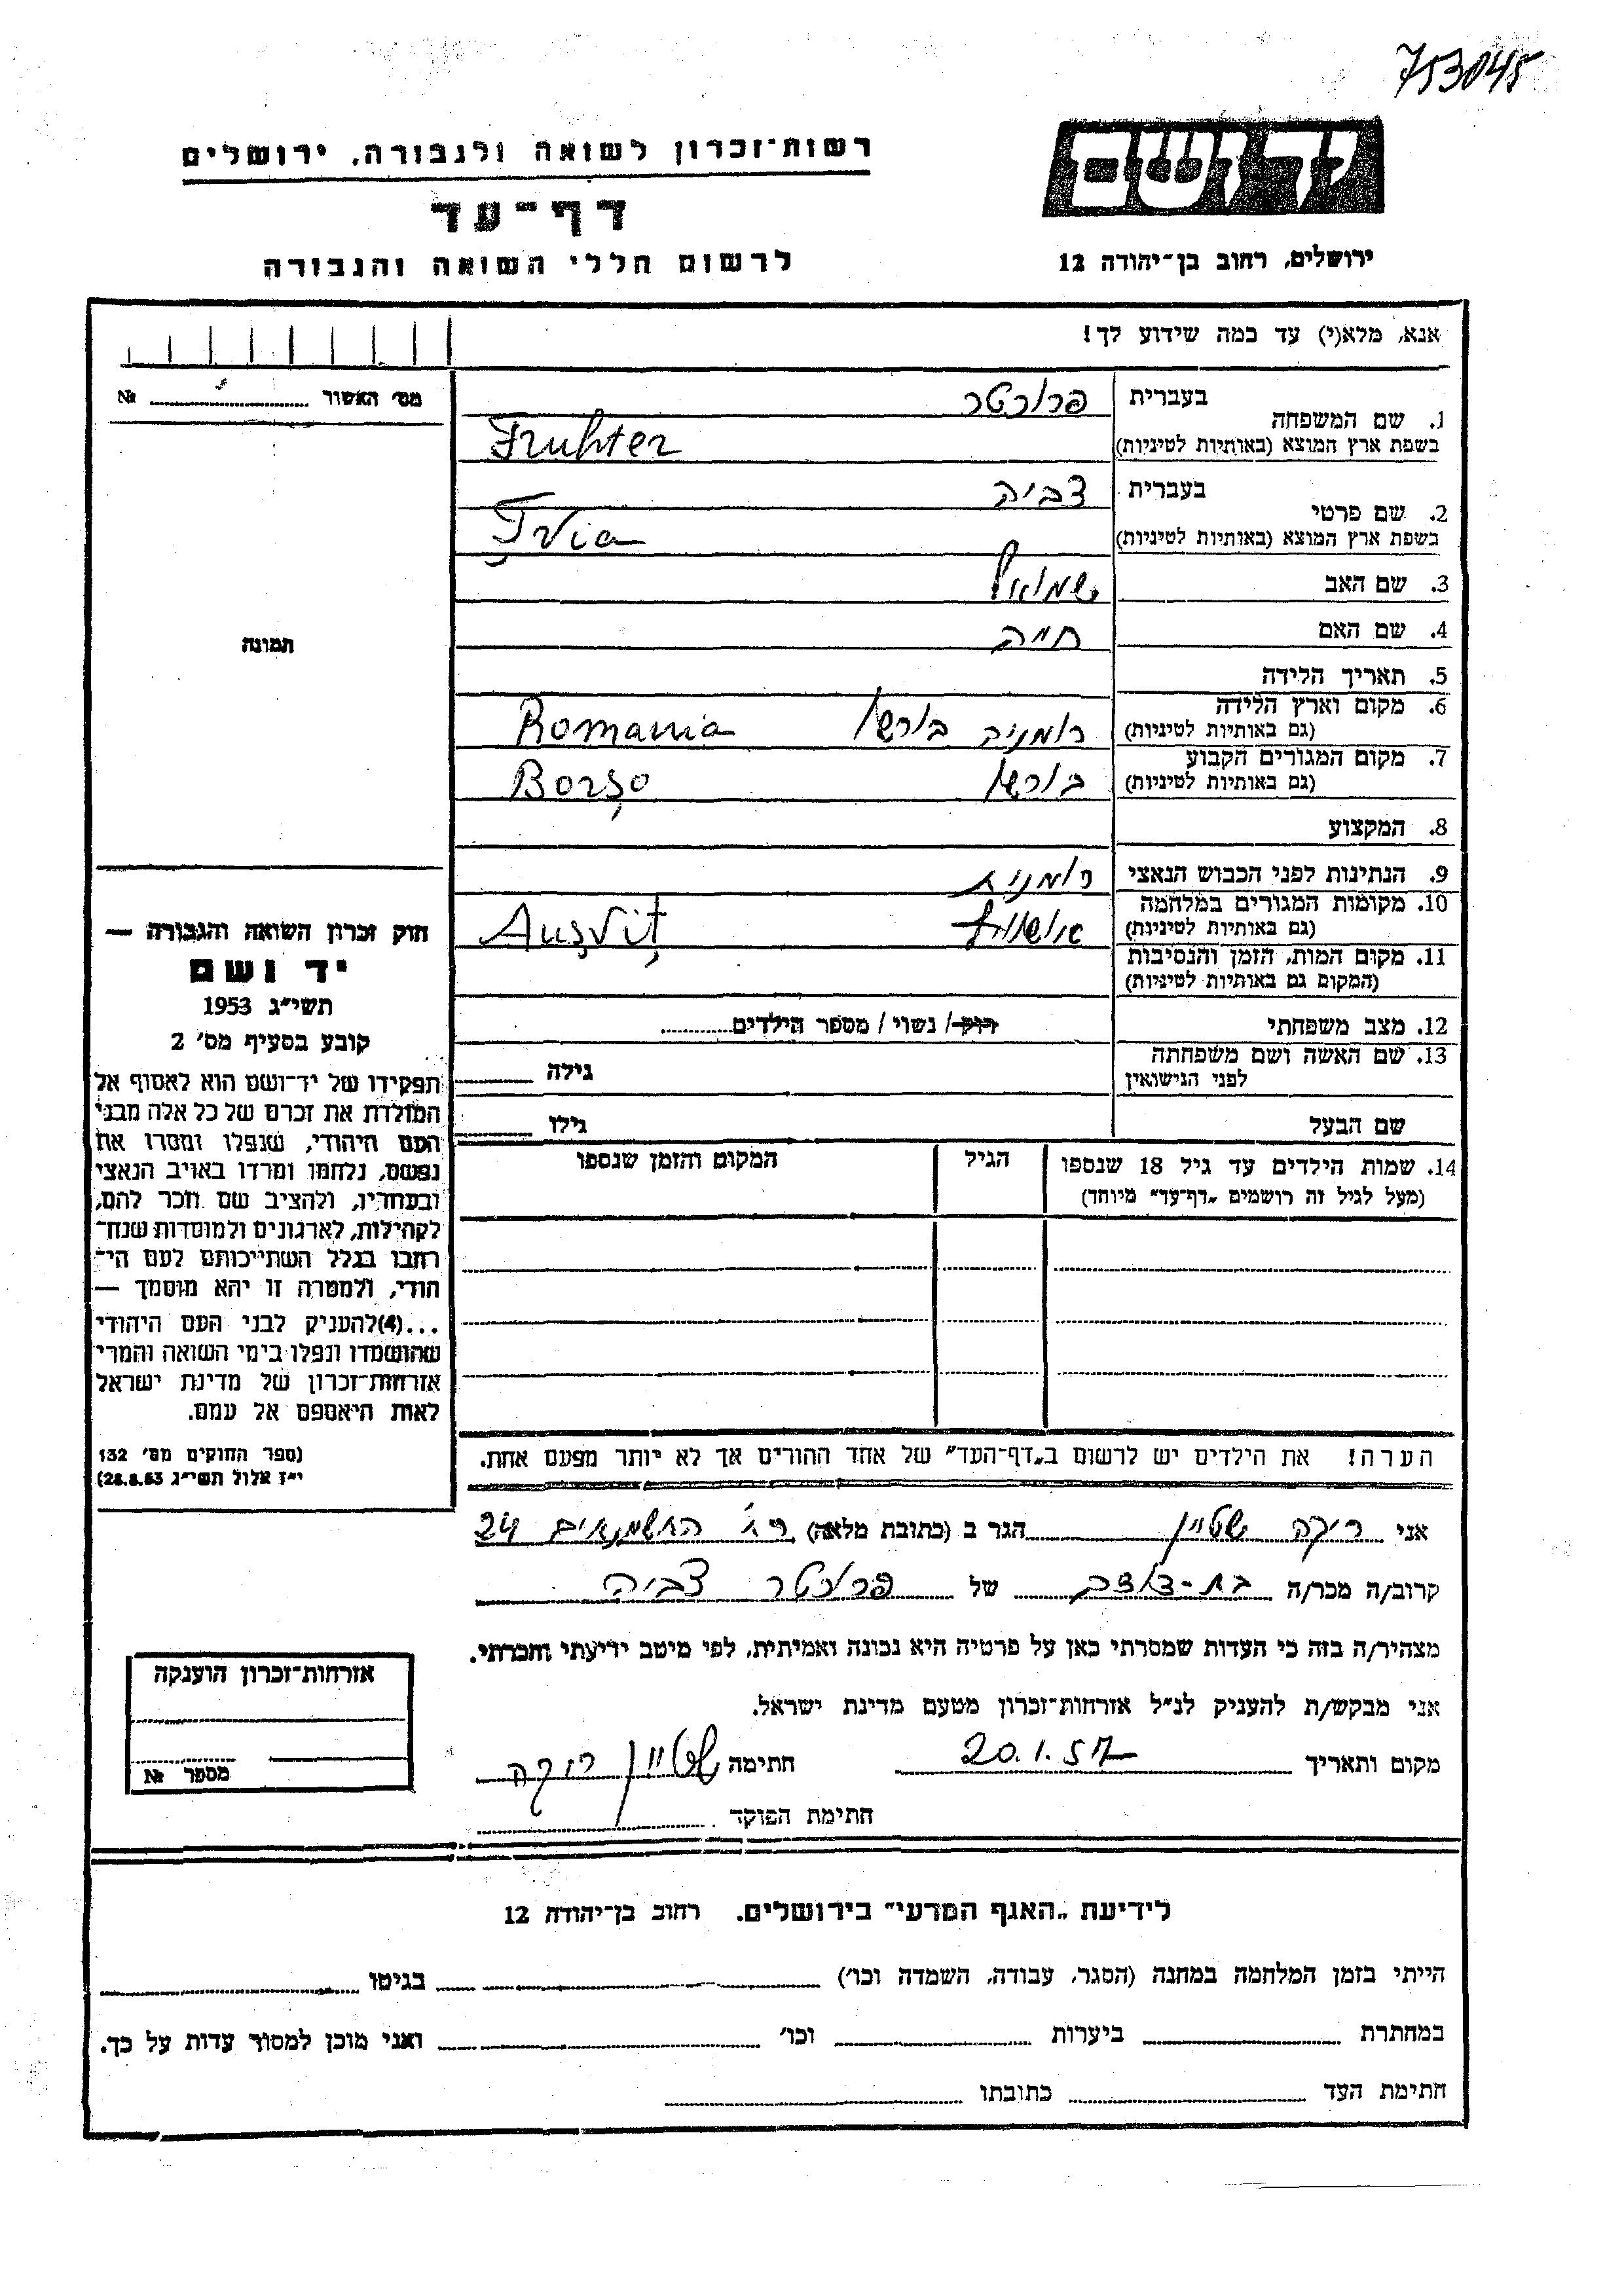 753045
יד ושם
רשות־זכרון לשואה ולגבורה, ירושלים
דף־עד
לרשום חללי השואה והגבורה
ירושלים, רחוב בן־יהודה 12
אנא, מלא(י) עד כמה שידוע לך!
מס׳ האשור №
1. שם המשפחה
בעברית פרוכטר
בשפת ארץ המוצא (באותיות לטיניות) Fruhter
2. שם פרטי
בעברית צביה
בשפת ארץ המוצא (באותיות לטיניות) Ţvia
3. שם האב שמואל
4. שם האם חייה
5. תאריך הלידה
6. מקום וארץ הלידה רומניה בורשו Romania
(גם באותיות לטיניות)
7. מקום המגורים הקבוע בורשו Borşo
(גם באותיות לטיניות)
8. המקצוע
9. הנתינות לפני הכבוש הנאצי רומנית
10. מקומות המגורים במלחמה
(גם באותיות לטינית) אושוויץ Auşviţ
11. מקום המות, הזמן והנסיבות
(המקום גם באותיות לטיניות)
12. מצב משפחתי רווק/ נשוי / מספר הילדים
13. שם האשה ושם משפחתה גילה
לפני הנישואין
שם הבעל גילו
14. שמות הילדים עד גיל 18 שנספו הגיל המקום והזמן שנספו
(מעל לגיל זה רושמים „דף־עד” מיוחד)
תמונה
חוק זכרון השואה והגבורה —
יד ושם
תשי״ג 1953
קובע בסעיף מס׳ 2
תפקידו של יד־ושם הוא לאסוף אל
המולדת את זכרם של כל אלה מבני
העם היהודי, שנפלו ומסרו את
נפשם, נלחמו ומרדו באויב הנאצי
ובעוזריו, ולהציב שם וזכר להם,
לקהילות, לארגונים ולמוסדות שנח־
רבו בגלל השתייכותם לעם הי־
הודי, ולמטרה זו יהא מוסמך —
...(4)להעניק לבני העם היהודי
שהושמדו ונפלו בימי השואה והמרי
אזרחות־זכרון של מדינת ישראל
לאות היאספם אל עמם.
(ספר החוקים מס׳ 132
י״ז אלול תשי״ג 28.8.53)
הערה! את הילדים יש לרשום ב„דף־העד” של אחד ההורים אך לא יותר מפעם אחת.
אני ריקה שטיין הגר ב (כתובת מלאה) רח׳ החשמונאים 24
קרוב/ה מכר/ה בת-דודה של פרוכטר צביה
מצהיר/ה בזה כי העדות שמסרתי כאן על פרטיה היא נכונה ואמיתית, לפי מיטב ידיעתי והכרתי.
אני מבקש/ת להעניק לנ״ל אזרחות־זכרון מטעם מדינת ישראל.
מקום ותאריך 20.1.57 חתימה שטיין ריקה
חתימת הפוקד
אזרחות־זכרון הוענקה
מספר №
לידיעת „האגף המדעי” בירושלים. רחוב בן־יהודה 12
הייתי בזמן המלחמה במחנה (הסגר, עבודה, השמדה וכו׳) בגיטו
במחתרת ביערות וכו׳ ואני מוכן למסור עדות על כך.
חתימת העד כתובתו